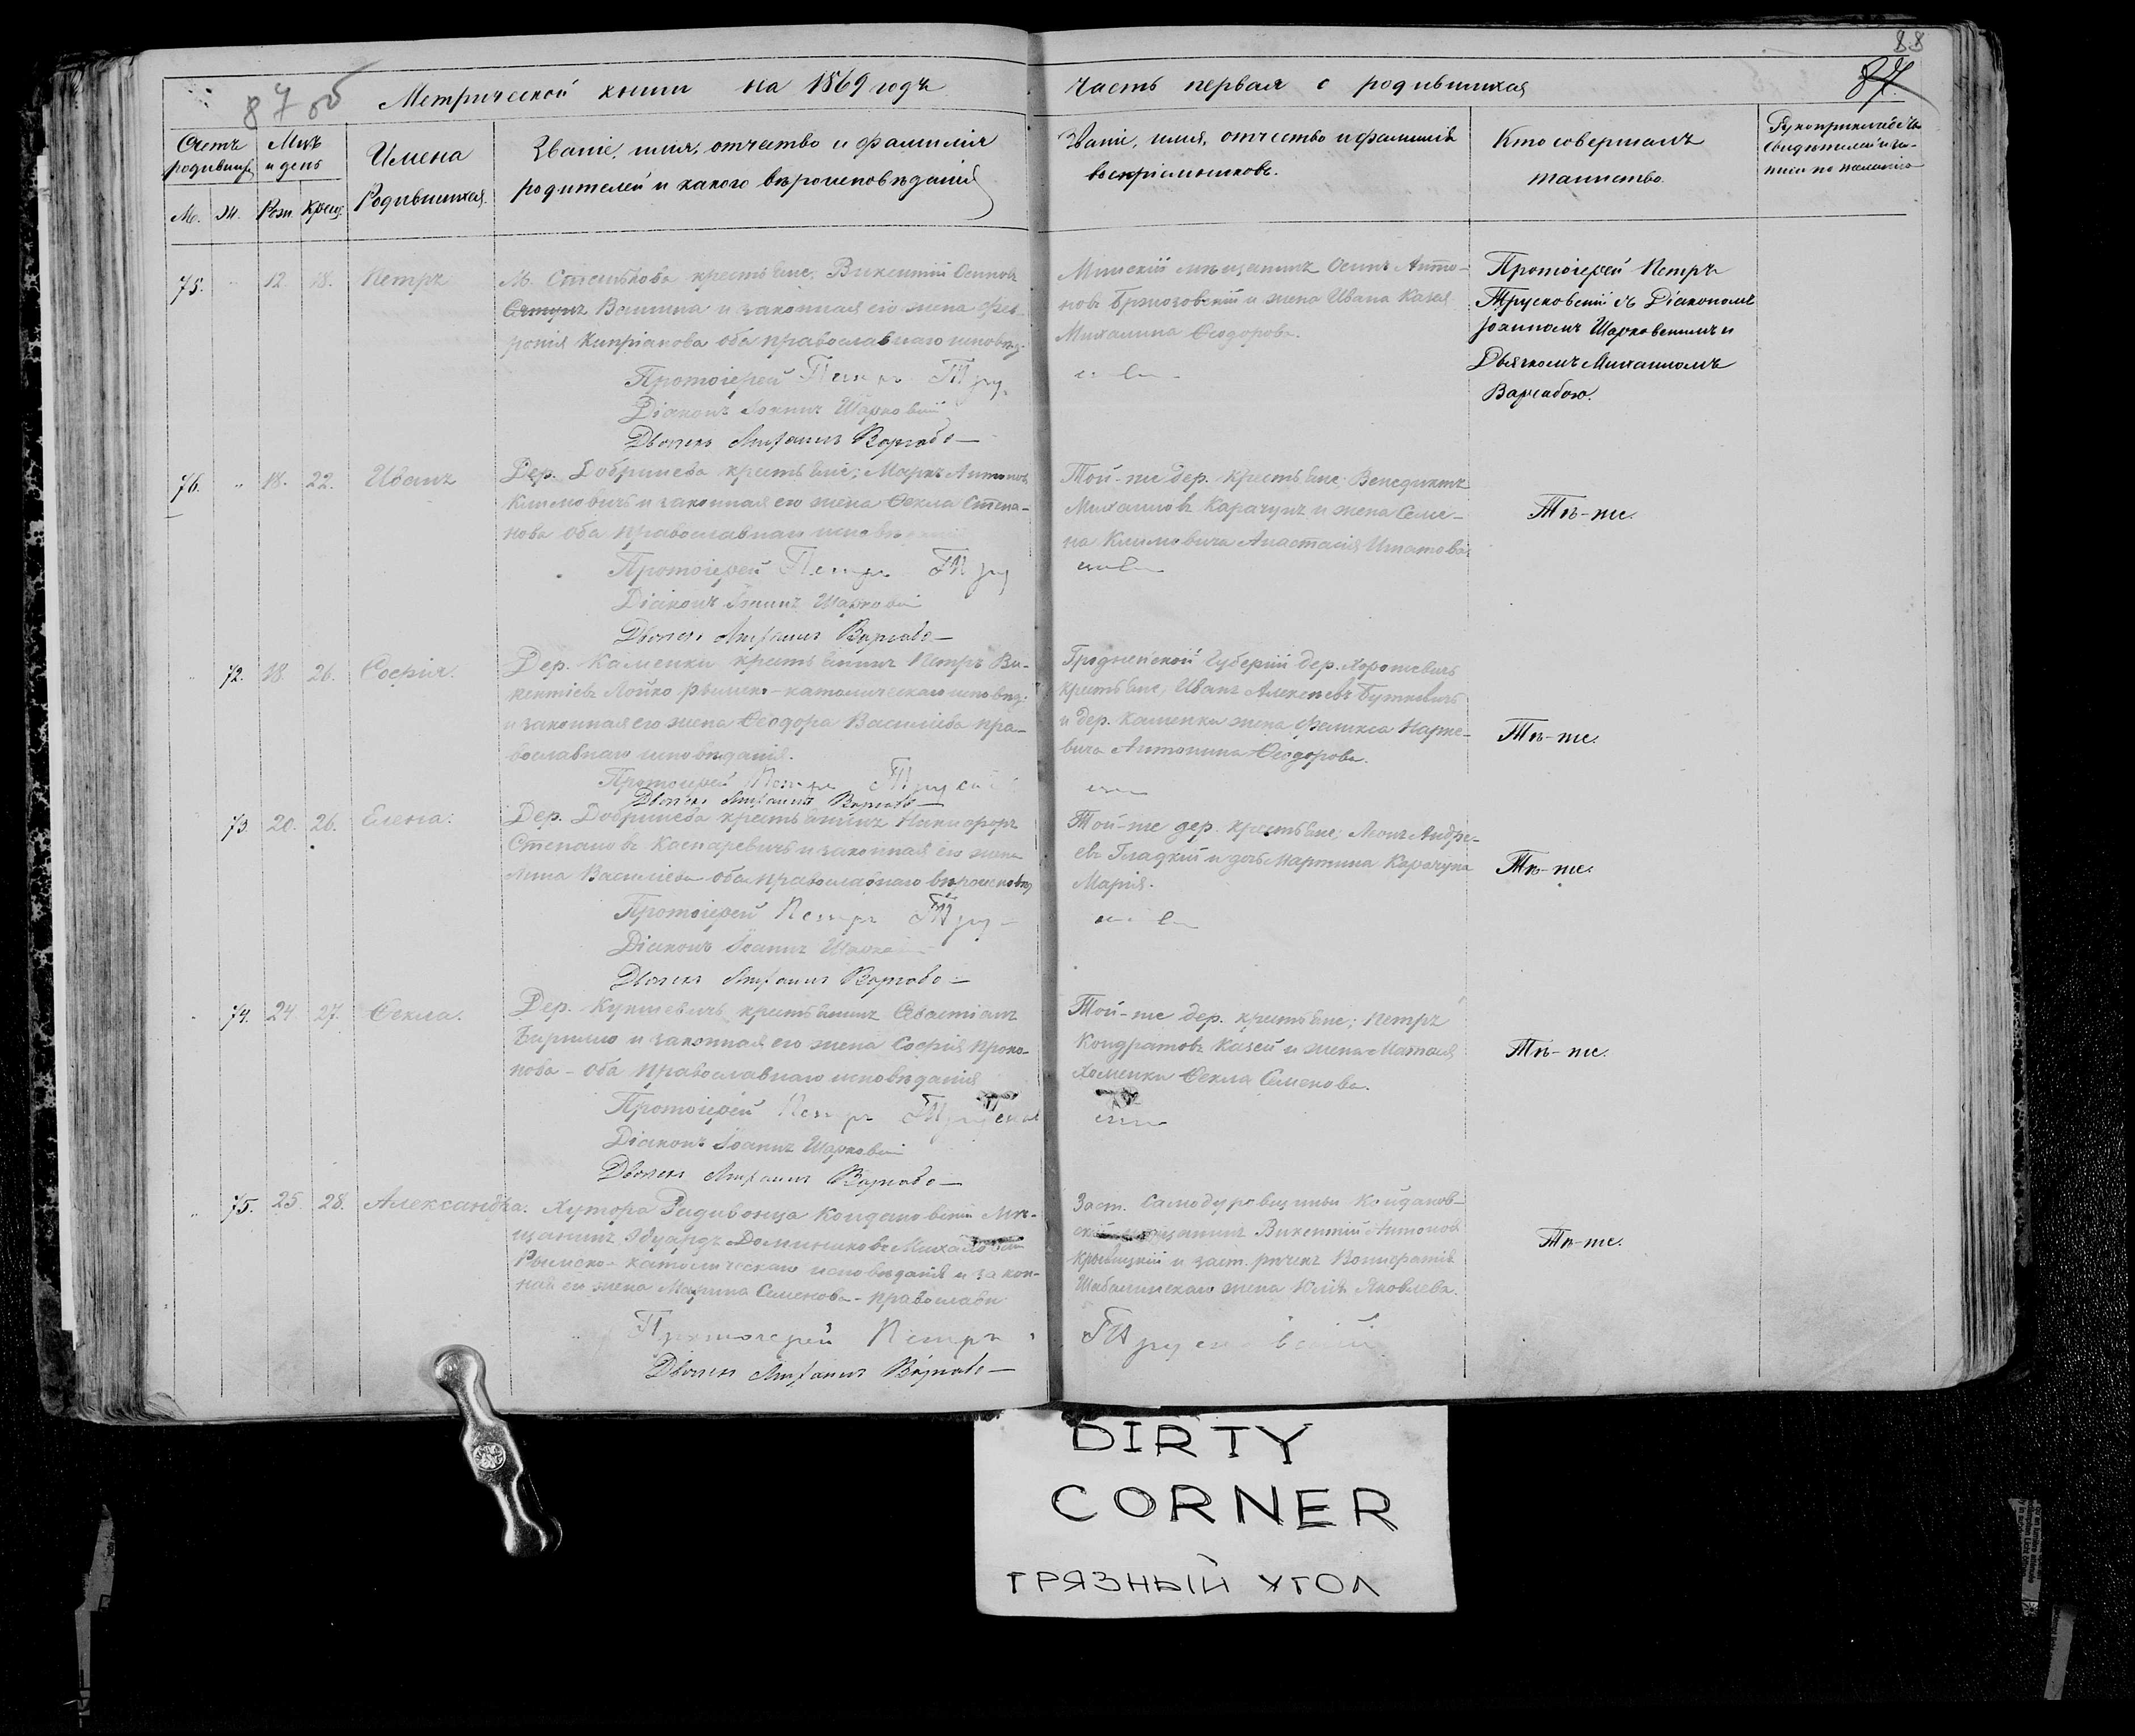 88
87 об
87
Метрической книги на 1869 годъ
часть первая о родившихся
Счетъ родивших
Мцъ и день
Имена Родившихся.
Званіе, имя, отчество и фамилія
родителей и какого вѣроисповѣданія
Званіе, имя, отчество и фамилія
воспріемниковъ.
Кто совершалъ
таинство.
М. Ж. Рож. Крещ.
75. 12. 18. Петръ
М. Станькова крестьяне, Викентій Осиповъ
Ванина и законная его жена Фев-
ронія Кипріанова оба православнаго исповѣд.
Протоіерей Петръ Тру
Діаконъ Іоаннъ Шарковскій
Дьячекъ Михаилъ Варнабо
Минскій мѣщанинъ Осипъ Анто-
новъ Бржозовскій и жена Ивана Казея
Михалина Ѳеодорова.
Протоіерей Петръ
Трусковскій съ Діакономъ
Іоанномъ Шарковскимъ и
Дьячкомъ Михаиломъ
Варнабою.
76. 18. 22. Иванъ
Дер. Добринева крестьяне; Маркъ Антоновъ
Климовичъ и законная его жена Ѳекла Степа-
нова оба православнаго исповѣданія
Протоіерей Петръ Тру
Діаконъ Іоаннъ Шарковскій
Дьячекъ Михаилъ Варнабо
Той-же дер. крестьяне; Венедиктъ
Михайловъ Карачунъ и жена Семе-
на Климовича Анастасія Игнатова
Тѣ-же.
72. 18. 26. Софія.
Дер. Каменки крестьянинъ Петръ Ви-
кентіевъ Лойко римско-католическаго исповѣд.
и законная его жена Ѳеодора Василіева пра-
вославнаго исповѣданія.
Протоіерей Петръ Труск
Дьячекъ Михаилъ Варнабо
Гродненской Губерніи дер. Хорошевичъ
крестьяне, Иванъ Алексѣевъ Буткевичъ
и дер. Каменки жена Феликса Нарке-
вича Антонина Ѳеодорова.
Тѣ-же.
73. 20. 26. Елена.
Дер. Добринева крестьянинъ Никифоръ
Степановъ Каспаревичъ и законная его жена
Анна Василіева оба православнаго вѣроисповѣд
Протоіерей Петръ Тру
Діаконъ Іоаннъ Шарков
Дьячекъ Михаилъ Варнабо
Той-же дер. крестьяне; Леонъ Андре-
евъ Гладкій и дочь Мартина Карачуна
Марія.
Тѣ-же.
74. 24. 27. Ѳекла.
Дер. Кукшевичъ крестьянинъ Савастіанъ
Бирилло и законная его жена Софія Проко-
пова - оба православнаго исповѣданія
Протоіерей Петръ Труско
Діаконъ Іоаннъ Шарковскій
Дьячекъ Михаилъ Варнабо
Той-же дер. крестьяне; Петръ
Кондратовъ Казей и жена Матвея
Хоменки Ѳекла Семенова.
Тѣ-же.
75. 25. 28. Александра.
Хутора Радивонца Койдановскій Мѣ-
щанинъ, Эдуардъ Доминиковъ Михаловскій
Римско-католическаго исповѣданія и закон-
ная его жена Марина Семенова - православн
Протоіерей Петръ
Дьячекъ Михаилъ Варнабо
Заст. Самодуровщины Койданов-
скій мѣщанинъ Викентій Антоновъ
Кривицкій и заст. рѣчекъ Вонифатія
Шабалинскаго жена Юлія Яковлева.
Трусковскій
Тѣ-же.
DIRTY
CORNER
ГРЯЗНЫЙ УГОЛ